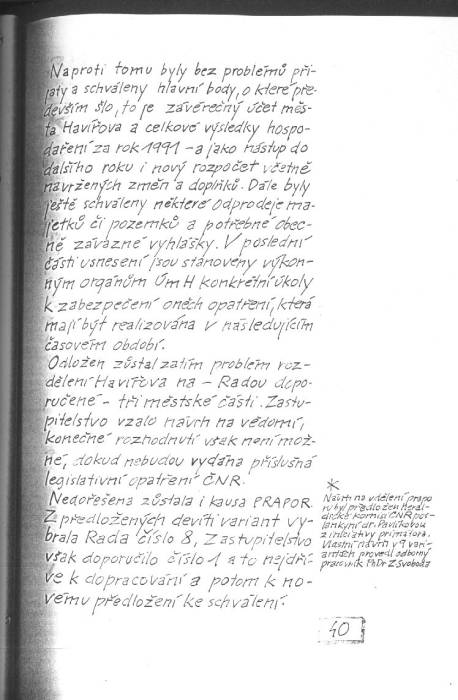 Naproti tomu byly bez problémů při-
jaty a schváleny hlavní body, o které pře-
devším šlo, to je závěrečný účet měs-
ta Havířova a celkové výsledky hospo-
daření za rok 1991 - a jako nástup do
dalšího roku i nový rozpočet včetně
navržených změn a doplňků. Dále byly
ještě schváleny některé odprodeje ma-
jetků či pozemků a potřebné obec-
ně závazné vyhlášky. V poslední
části usnesení jsou stanoveny výkon-
ným orgánům ÚmH konkrétní úkoly
k zabezpečení oněch opatření, která
mají být realizována v následujícím
časovém období.
Odložen zůstal zatím problém roz-
dělení Havířova na - Radou dopo-
ručené - tři městské části. Zastu-
pitelstvo vzalo návrh na vědomí,
konečné rozhodnutí však není mož-
né, dokud nebudou vydána příslušná
legislativní opatření ČNR.
Nedořešena zůstala i kausa PRAPOR.
Z předložených devíti variant vy-
brala Rada číslo 8, Zastupitelstvo
však doporučilo číslo 1 a to nejdří-
ve k dopracování a potom k no-
vému předložení ke schválení.
*
Návrh na udělení prapo
ru byl předložen Heral-
dické komisi ČNR pos-
lankyní dr. Pavlíkovou
z iniciativy primátora.
Vlastní návrh v 9 vari-
antách provedl odborný
pracovník PhDr Z Svoboda
40